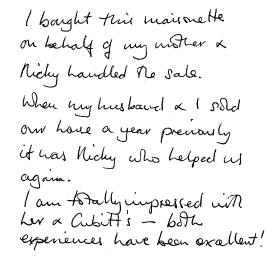 I bought this maisonette
on behalf of my mother &
Nicky handled the sale.
When my husband & I sold
our house a year previously
it was Nicky who helped us
again.
I am totally impressed with
her & Cubitt's – both
experiences have been excellent!